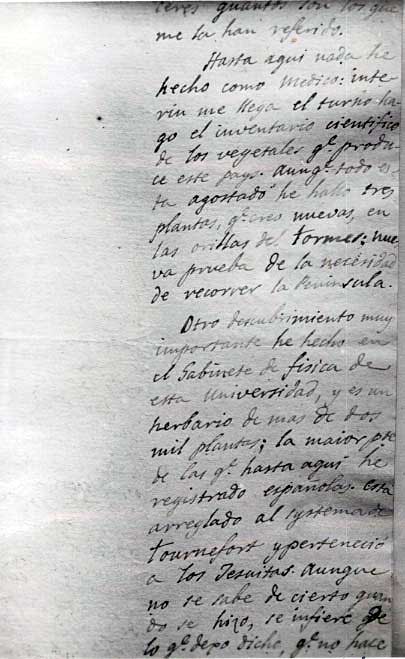 teres quantos son los que
me la han referido.
Hasta aqui nada he
hecho como Medico: inte-
rin me llega el turno ha-
go el inventario cientifico
de los vegetales q.e produ-
ce este pays. Aunq.e todo es-
ta agostado he hallado tres
plantas, q.e creo nuevas, en
las orillas del Tormes; nue-
va prueba de la necesidad
de recorrer la Peninsula.
Otro descubrimiento muy
importante he hecho en
el Gabinete de fisica de
esta Universidad, y es un
herbario de mas de dos
mil plantas; la maior pte
de las q.e hasta aqui he
registrado españolas. Está
arreglado al systema de
Tournefort y perteneció
a los Jesuitas. Aunque
no se sabe de cierto quan-
do se hizo, se infiere de
lo q.e depo dicho, q.e no hace